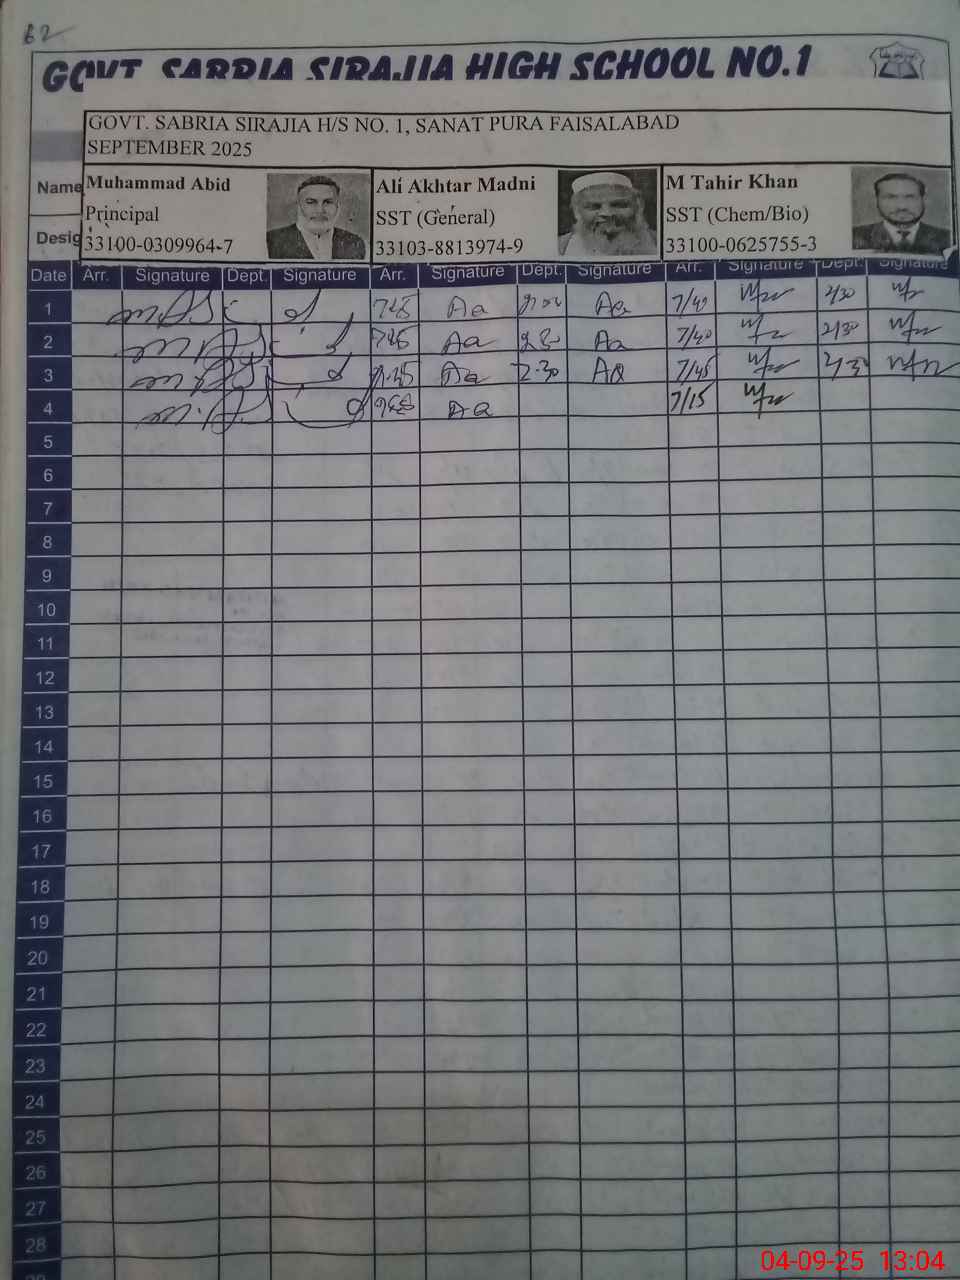 62
GOVT. SABRIA SIRAJIA HIGH SCHOOL NO.1
GOVT. SABRIA SIRAJIA H/S NO. 1, SANAT PURA FAISALABAD
SEPTEMBER 2025
Name Muhammad Abid Ali Akhtar Madni M Tahir Khan
Principal SST (General) SST (Chem/Bio)
Desig 33100-0309964-7 33103-8813974-9 33100-0625755-3
Date Arr. Signature Dept. Signature Arr. Signature Dept. Signature Arr. Signature Dept. Signature
1 Aa Aa 7/40 2/30
2 Aa Aa 7/40 2/30
3 Aa 2-30 Aa 7/45
4 Aa 7/15
5
6
7
8
9
10
11
12
13
14
15
16
17
18
19
20
21
22
23
24
25
26
27
28
29
04-09-25 13:04